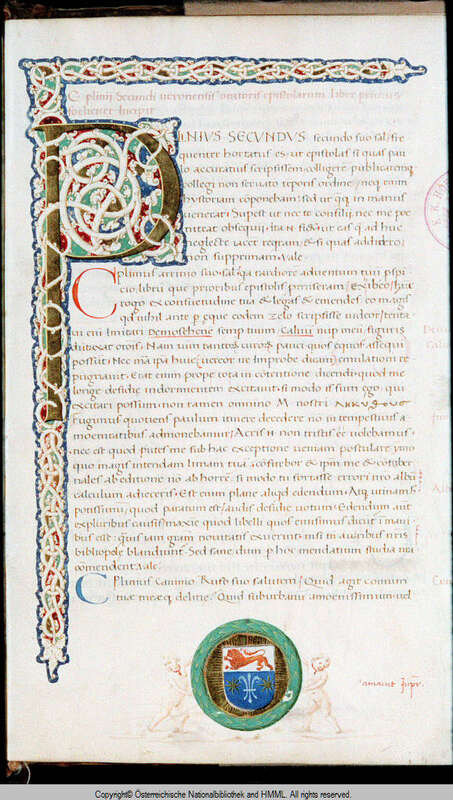 C plinij Secundi ueronensis oratoris epistolarum liber primus
foeliciter Incipit
PLINIVS SECVNDVS secundo suo sal. fre
quenter hortatus es, ut epistolas si quas pau
lo accuratius scripsissem colligerē publicaremq
collegi non seruato tēporis ordine, neq enim
hystoriam cōponebam: sed ut qq in manus
uenerat. Supest ut nec te consilij, nec me pe
niteat obsequij.
neglecte iacet reqram, & si quas addidero
non supprimam. Vale
C plinius arrino suo sal. qa tardiorē aduentum tuū pspi
cio, librū que prioribus epistolis pmiseram, exibeo, hūc
rogo ex consuetudine tua & legas & emendes. eo magis
qd nihil ante peque eodem zelo scripsisse uideor, tenta
ui eni imitari Demosthenē semp tuum Caluū nup meū, figuris
dūtaxat orōis. Nam uim tantoᷣ uiroᷣ pauci quos equus assequi
possūt. Nec mā ipa huic, uereor ne Improbe dicam, emulationi re
pugnauit. Erat enim prope tota in cōtentione dicendi, quod me
longe desidie indormientem excitauit. si modo is sum ego qui
excitari possum. non tamen omnino M nostri
fugimus quotiens paulum itinere decedere nō intempestiuis a-
moenitatibus admonebamur, Acres n. non tristes ēe uolebamus.
nec est quod putes me sub hac exceptione ueniam postulare ymo
quo magis intendam limam tuā, cōfitebor & ipm me & cōtuber
nales ab editione nō abhorrē. si modo tu fortasse errori nro albū
calculum adieceris. Est enim plane aliqd edendum. Atq utinam h
potissimū, quod paratum est, audis desidie uotum, Edendum aut
expluribus causis, maxie quod libelli quos emisimus dicūt i mani
bus esse. quis iam gram nouitatis exuerint. nisi tn auribus nris
bibliopole blandiunt. Sed sane dum p hoc mendatium studia nra
comendent. Vale
C Plinius Caninio Rufo suo salutem, Quid agit comum
tue meeq delitie, Quid suburbanū amoenissimum, uel
Copyright© Österreichische Nationalbibliothek and HMML. All rights reserved.